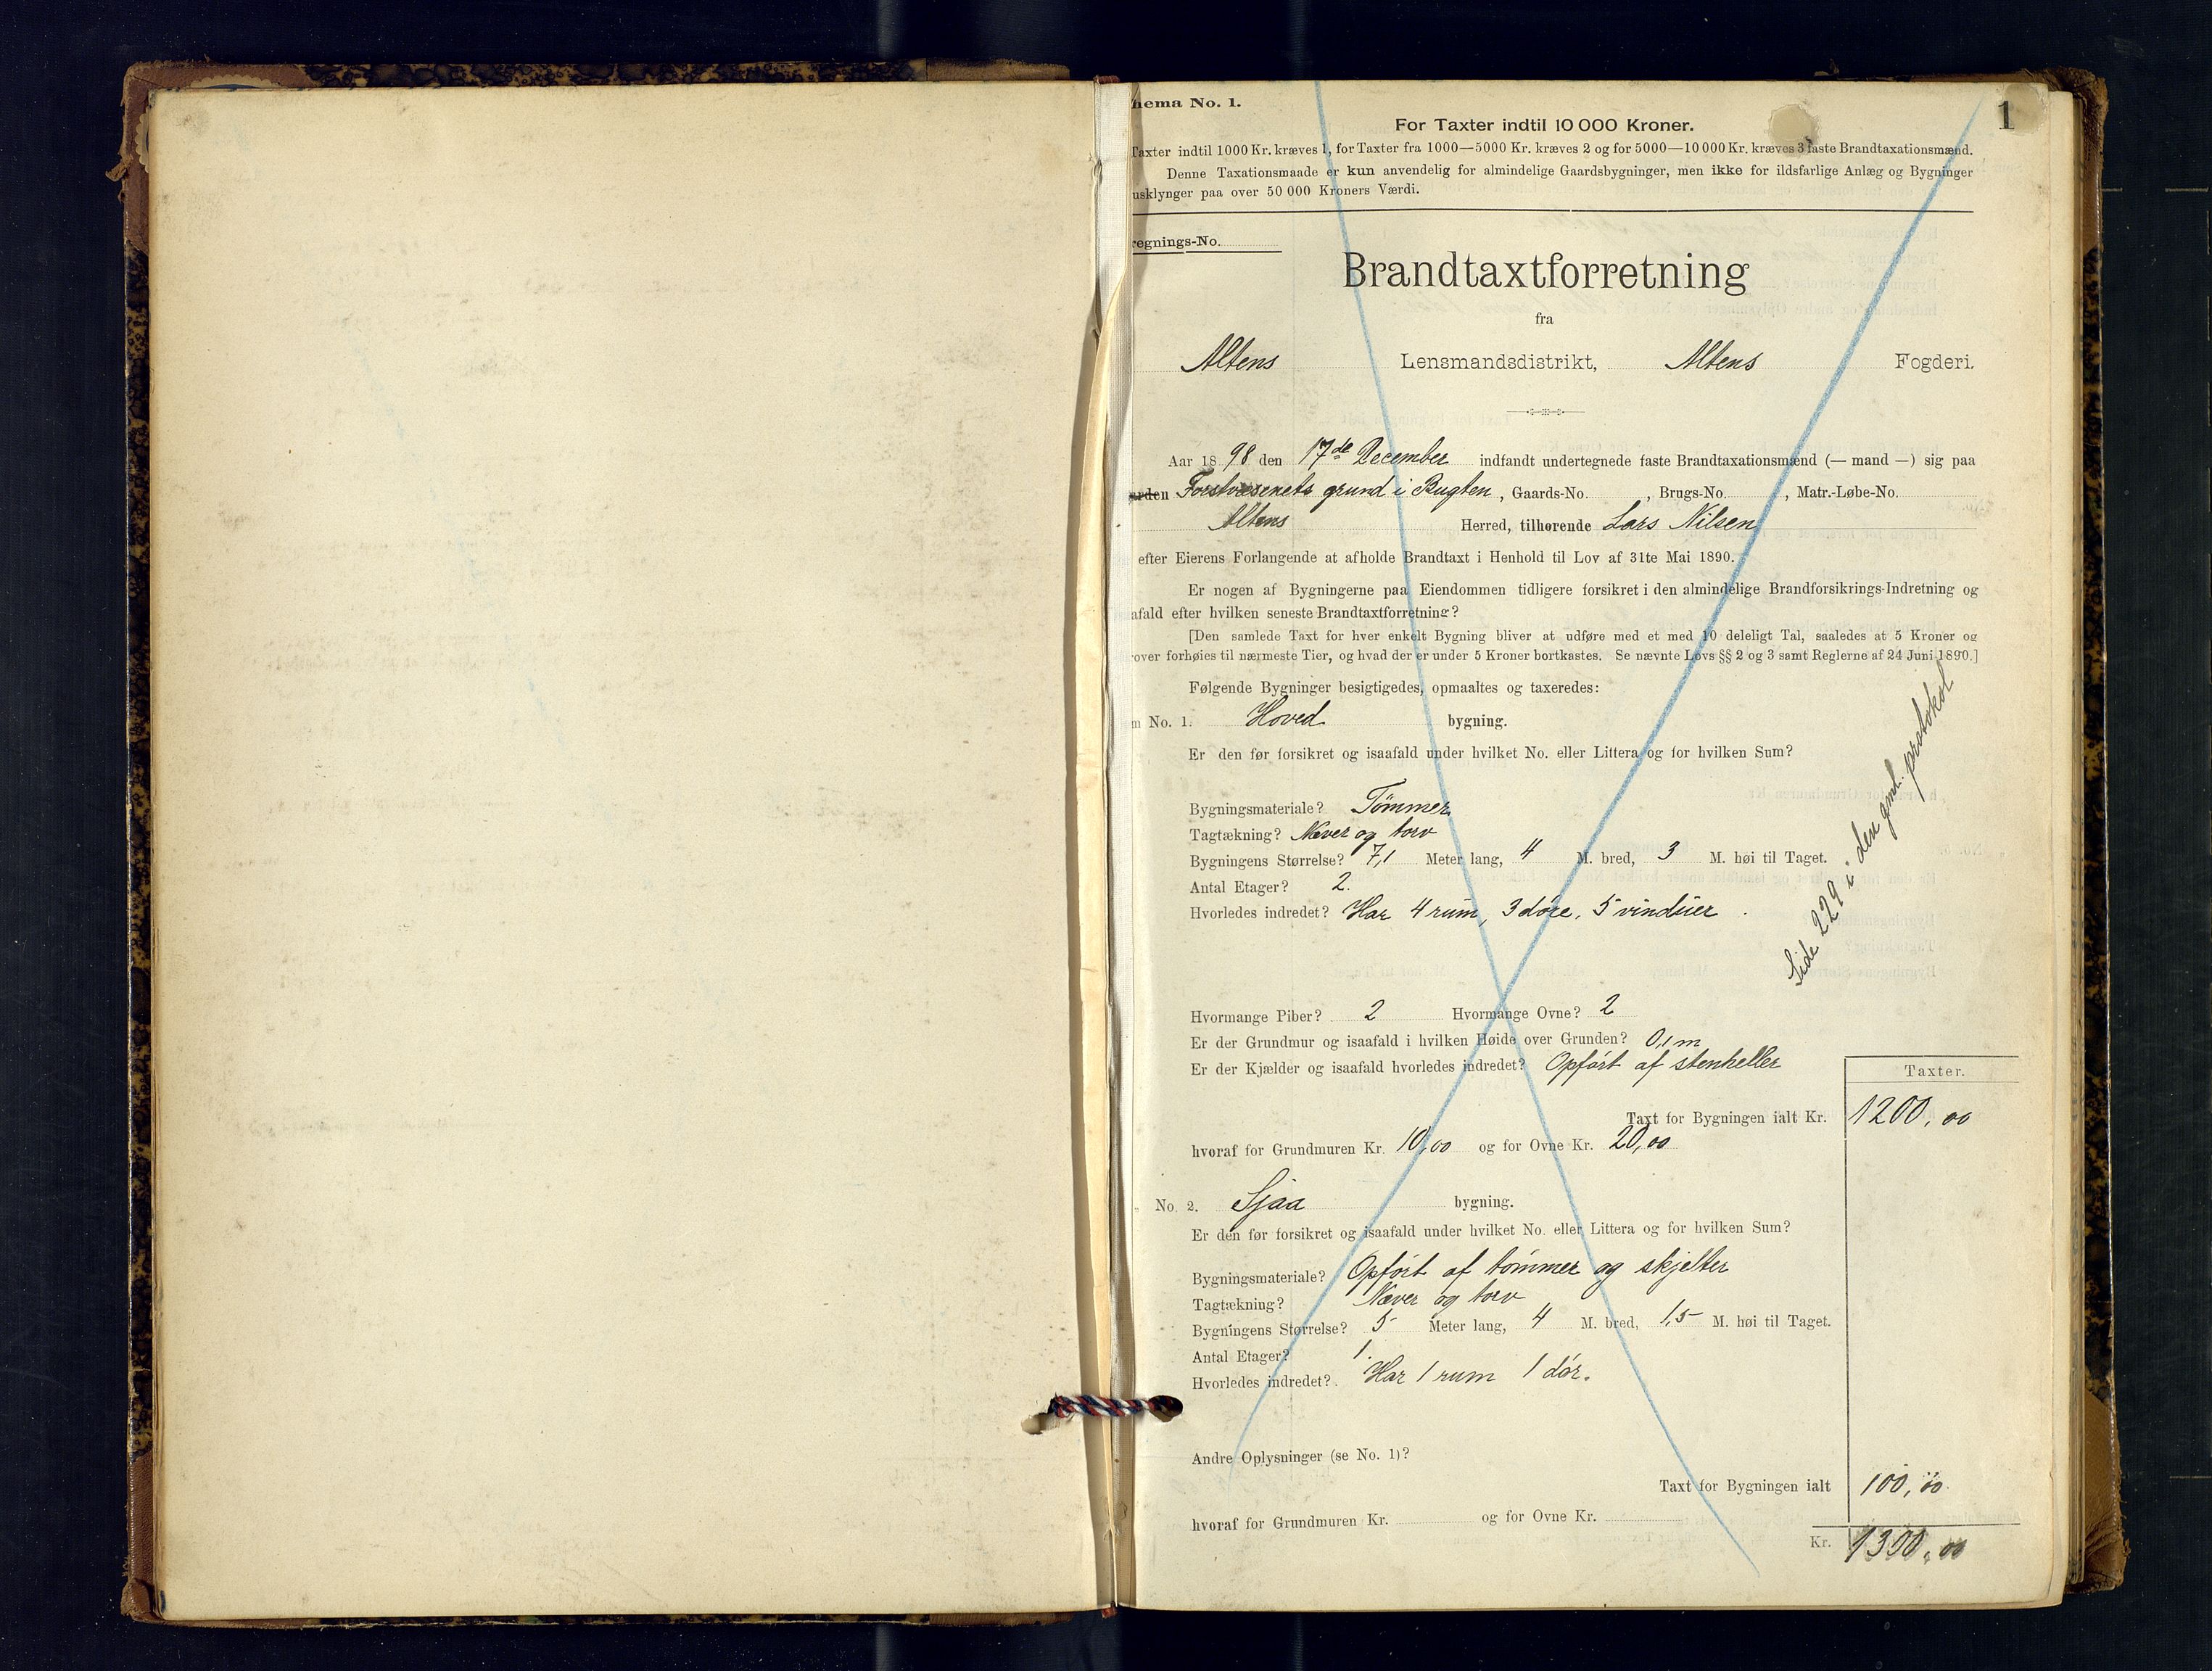 hema No. 1.
1
For Taxter indtil 10 000 Kroner.
Taxter indtil 1000 Kr. kræves 1, for Taxter fra 1000—5000 Kr. kræves 2 og for 5000—10 000 Kr. kræves 3 faste Brandtaxationsmænd.
Denne Taxationsmaade er kun anvendelig for almindelige Gaardsbygninger, men ikke for ildsfarlige Anlæg og Bygninger
usklynger paa over 50 000 Kroners Værdi.
regnings-No.
Brandtaxtforretning
fra
Altens Lensmandsdistrikt, Altens Fogderi.
Aar 1898 den 17de December indfandt undertegnede faste Brandtaxationsmænd (— mand —) sig paa
arden Forstvæsenets grund i Bugten, Gaards-No. , Brugs-No. , Matr.-Løbe-No.
Altens Herred, tilhørende Lars Nilsen
efter Eierens Forlangende at afholde Brandtaxt i Henhold til Lov af 31te Mai 1890.
Er nogen af Bygningerne paa Eiendommen tidligere forsikret i den almindelige Brandforsikrings-Indretning og
afald efter hvilken seneste Brandtaxtforretning?
[Den samlede Taxt for hver enkelt Bygning bliver at udføre med et med 10 deleligt Tal, saaledes at 5 Kroner og
over forhøies til nærmeste Tier, og hvad der er under 5 Kroner bortkastes. Se nævnte Lovs §§ 2 og 3 samt Reglerne af 24 Juni 1890.]
Følgende Bygninger besigtigedes, opmaaltes og taxeredes:
m No. 1. Hoved bygning.
Er den før forsikret og isaafald under hvilket No. eller Littera og for hvilken Sum?
Bygningsmateriale? Tømmer
Tagtækning? Næver og torv
Bygningens Størrelse? 7,1 Meter lang, 4 M. bred, 3 M. høi til Taget.
Antal Etager? 2.
Hvorledes indredet? Har 4 rum, 3 døre, 5 vinduer.
Side 229 i den gml. protokol
Hvormange Piber? 2 Hvormange Ovne? 2
Er der Grundmur og isaafald i hvilken Høide over Grunden? 0,1 m
Er der Kjælder og isaafald hvorledes indredet? Opført af stenheller
Taxter.
Taxt for Bygningen ialt Kr. 1200,00
hvoraf for Grundmuren Kr. 10,00 og for Ovne Kr. 20,00
No. 2. Sjaa bygning.
Er den før forsikret og isaafald under hvilket No. eller Littera og for hvilken Sum?
Bygningsmateriale? Opført af tømmer og skjelter
Tagtækning? Næver og torv
Bygningens Størrelse? 5 Meter lang, 4 M. bred, 1,5 M. høi til Taget.
Antal Etager? 1.
Hvorledes indredet? Har 1 rum 1 dør.
Andre Oplysninger (se No. 1)?
Taxt for Bygningen ialt 100,00
hvoraf for Grundmuren Kr. og for Ovne Kr.
Kr. 1300,00